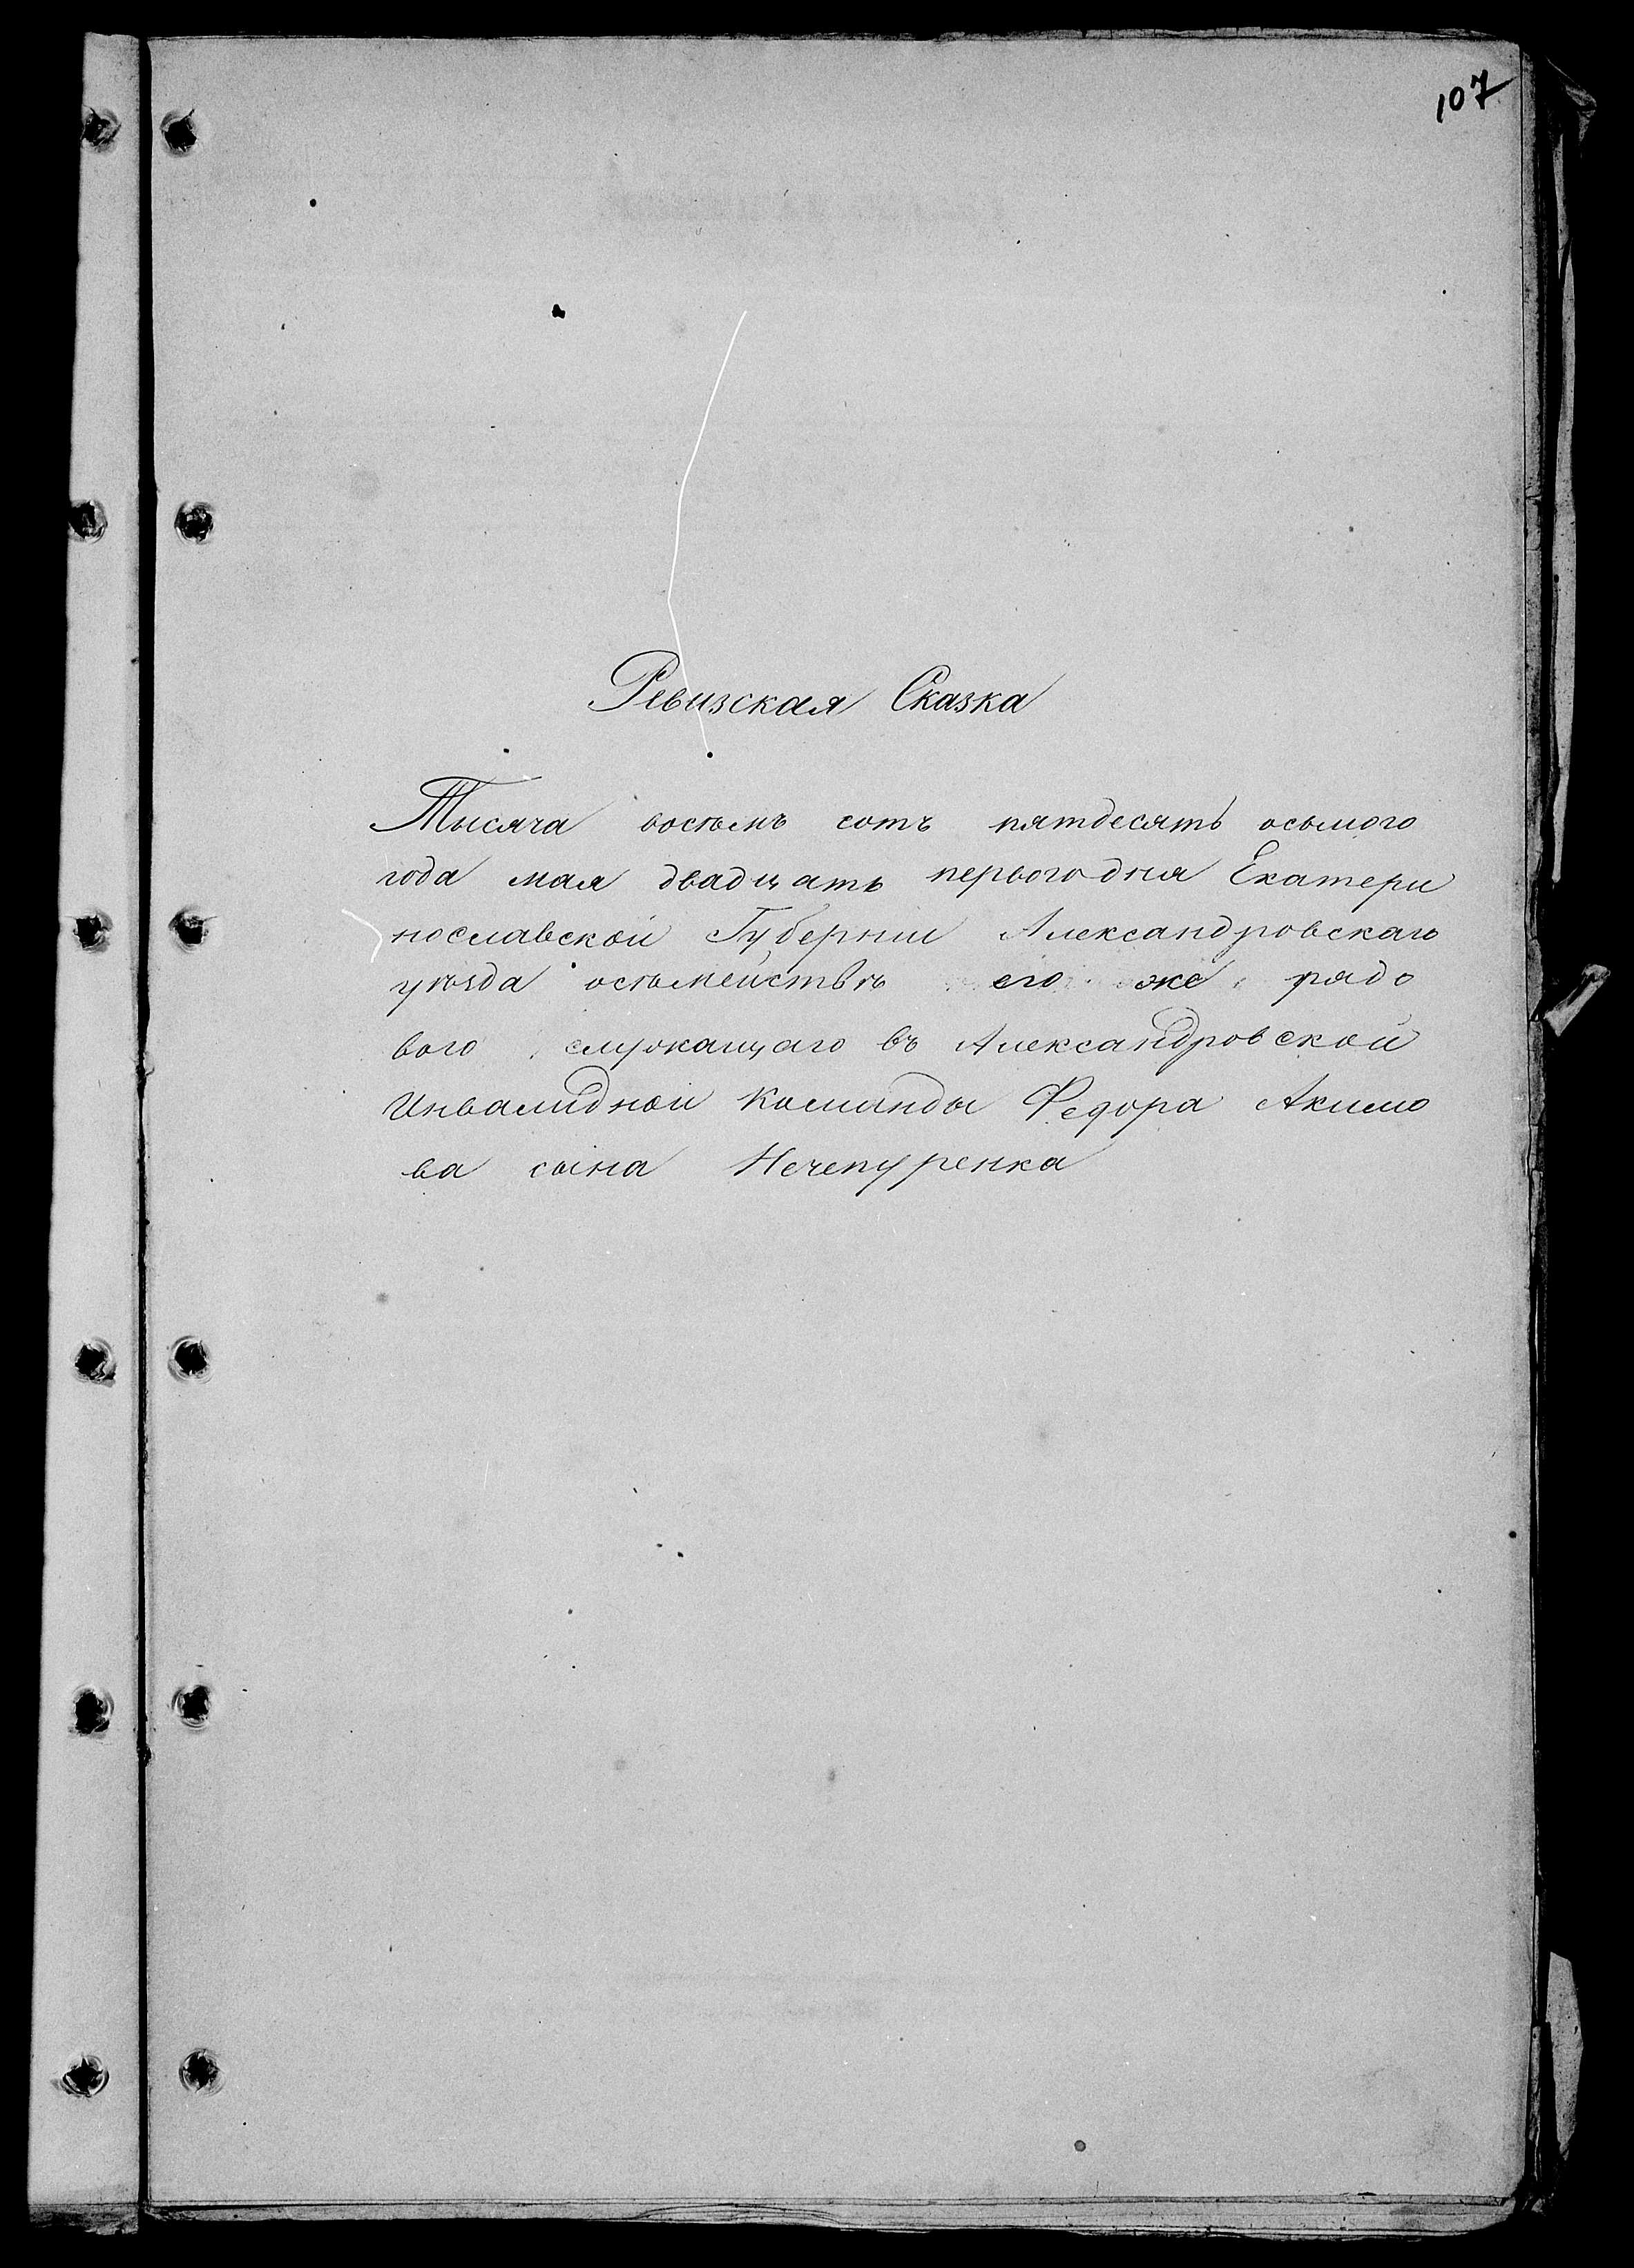 107
Ревизская Сказка
Тысяча восъмъ сотъ пятдесятъ осьмого
года мая двадцать первого дня Екатери
нославской Губернии Александровскаго
уѣзда осѣмействѣ его же рядо
вого служащаго въ Александровской
Инвалидной Команды Федора Акимо
ва сына Нечепуренка